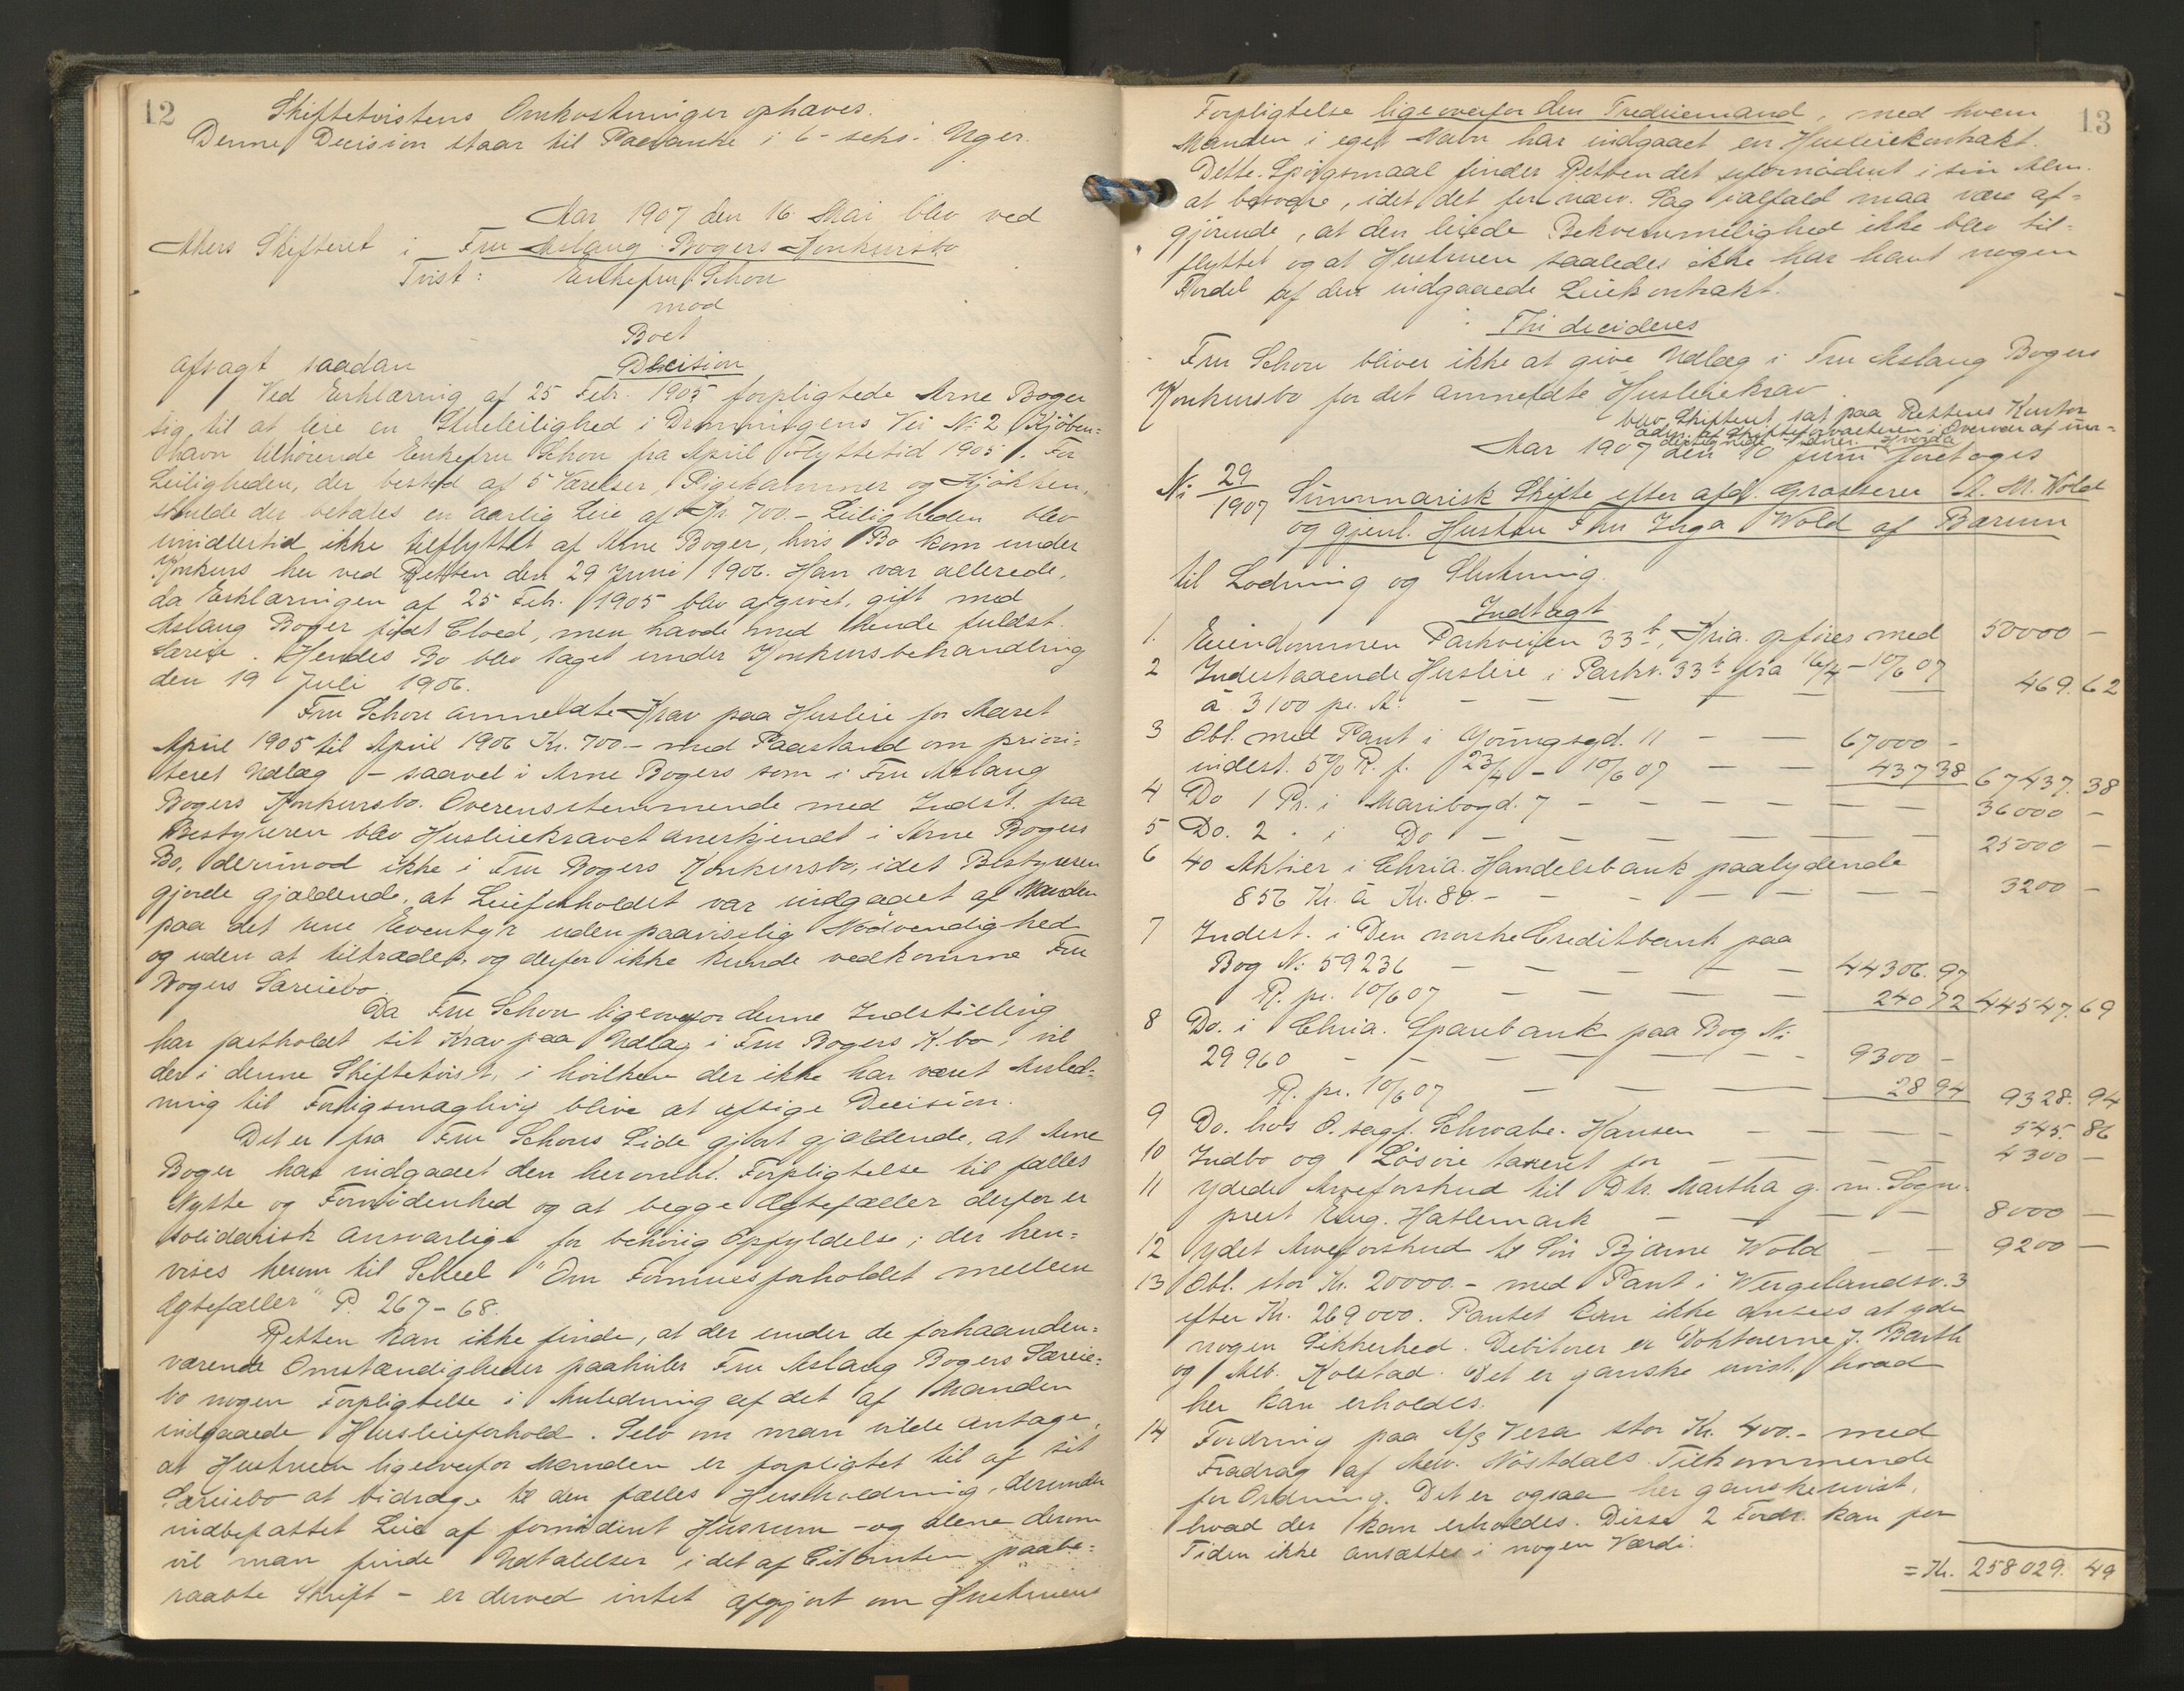 12
Skiftetvistens Omkostninger ophæves.
Denne Decision staar til Paaanke i 6 - seks - Uger.
Aar 1907 den 16 Mai blev ved
Akers Skifteret i Fru Aslaug Bogers Konkursbo
Tvist: Enkefru Schou
mod
Boet
afsagt saadan Decision
Ved Erklæring af 25 Febr. 1905 forpligtede Arne Boger
sig til at leie en Stueleilighed i Dronningens Vei No 2 Kjöben-
havn tilhörende Enkefru Schou fra April Flyttetid 1905. For
Leiligheden, der bestod af 5 Værelser, Pigekammer og Kjökken,
skulde der betales en aarlig Leie af Kr. 700.- Leiligheden blev
imidlertid ikke tilflyttet af Arne Boger, hvis Bo kom under
Konkurs her ved Retten den 29 Juni 1906. Han var allerede,
da Erklæringen af 25 Feb. 1905 blev afgivet, gift med
Aslaug Boger född Cloëd, men havde med hende fuldst.
Særeie. Hendes Bo blev taget under Konkursbehandling
den 19 Juli 1906.
Fru Schou anmeldte Krav paa Husleie for Aaret
April 1905 til April 1906 Kr. 700.- med Paastand om priori-
teret Udlæg - saavel i Arne Bogers som i Fru Aslaug
Bogers Konkursbo. Overensstemmende med Indst. fra
Bestyreren blev Husleiekravet anerkjendt i Arne Bogers
Bo, derimod ikke i Fru Bogers Konkursbo, idet Bestyreren
gjorde gjældende, at Leieforholdet var indgaaet af Manden
paa det rene Eventyr uden paaviselig Nödvendighed
og uden at tiltrædes og derfor ikke kunde vedkomme Fru
Bogers Særeiebo.
Da Fru Schou ligeoverfor denne Indstilling
har fastholdt sit Krav paa Udlæg i Fru Bogers K.bo, vil
der i denne Skiftetvist, i hvilken der ikke har været Anled-
ning til Forligsmægling blive at afsige Decision.
Det er fra Fru Schous Side gjort gjældende, at Arne
Boger har indgaaet den heromh. Forpligtelse til fælles
Nytte og Fornödenhed og at begge Ægtefæller derfor er
solidarisk ansvarlige for behörig Opfyldelse; der hen-
vises herom til Scheel "Om Formuesforholdet mellem
Ægtefæller" P. 267-68.
Retten kan ikke finde, at der under de forhaanden-
værende Omstændigheder paahviler Fru Aslaug Bogers Særeie-
bo nogen Forpligtelse i Anledning af det af Manden
indgaaede Husleieforhold. Selv om man vilde antage,
at Hustruen ligeoverfor Manden er forpligtet til af sit
Særeiebo at bidrage til den fælles Husholdning, derunder
indbefattet Leie af fornödent Husrum - og alene derom
vil man finde Udtalelser i det af Citanten paabe-
raabte Skrift - er derved intet afgjort om Hustruens
13
Forpligtelse ligeoverfor den Trediemand, med hvem
Manden i eget Navn har indgaaet en Husleiekontrakt.
Dette Spörgsmaal finder Retten det ufornödent i sin Alm.
at besvare, idet det for nærv. Sag ialfald maa være af-
gjörende, at den leiede Bekvemmelighed ikke blev til-
flyttet og at Hustruen saaledes ikke har havt nogen
Fordel af den indgaaede Leiekontrakt.
Thi decideres
Fru Schou bliver ikke at give Udlæg i Fru Aslaug Bogers
Konkursbo for det anmeldte Husleiekrav.
blev Skifteret sat paa Rettens Kontor
adm. af Skifteforvalteren i Overvær af un-
dertegnede Vidner. Hvorda
Aar 1907 den 10 Juni foretoges
No 29/1907 Summarisk Skifte efter afd. Grosserer A. M. Wold
og gjenl. Hustru Fru Inga Wold af Bærum
til Lodning og Slutning.
Indtægt
1. Eiendommen Parkveien 33b, Kria. opföres med 50000 -
2 Indestaaende Husleie i Parkv. 33b fra 16/4 - 10/6 07
à 3100 pr. A. - - - - 469.62
3 Obl. med Pant i Grönngsgd. 11 - - 67000 -
indest. 5% R. f. 23/4 - 10/6 07 - - 437 38 67437.38
4 Do 1 Pr. i Maribogd. 7 - - - - - - 36000 -
5 Do. 2 " i Do - - - - - - 25000 -
6 40 Aktier i Chria. Handelsbank paalydende
856 Kr. à Kr. 80.- - - - - - 3200 -
7 Indest. i Den norske Creditbank paa
Bog No 59236 - - - - - 44306.97
R. pr. 10/6 07 - - - - 240 72 44547.69
8 Do. i Chria. Sparebank paa Bog No
29960 - - - - - - - 9300 -
R. pr. 10/6 07 - - - 28 94 9328.94
9 Do. hos O.sagf. Schwabe-Hansen - - - - 545.86
10 Indbo og Lösöre taxeret for - - - - - 4300 -
11 Ydede Arveforskud til Dtr. Martha g. m. Sogne-
prest Eug. Hatlemark - - - - 8000 -
12 Ydet Arveforskud til Sön Bjarne Wold - - 9200 -
13 Obl. stor Kr. 20000.- med Pant i Wergelandsv. 3
efter Kr. 269000. Pantet kan ikke ansees at yde
nogen Sikkerhed. Debitorer er Doktorerne J. Barth
og Alb. Kolstad. Det er ganske uvist, hvad
her kan erholdes.
14 Fordring paa A/S Vera stor Kr. 400.- med
Fradrag af Adv. Nöstdals Tilkommende
for Ordning. Det er ogsaa her ganske uvist,
hvad der kan erholdes. Disse 2 Fordr. kan for
Tiden ikke ansættes i nogen Værdi.
= Kr. 258029.49